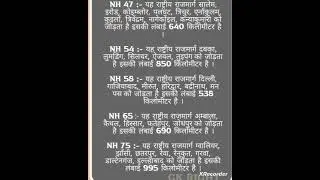 NH 47 :- यह राष्ट्रीय राजमार्ग सालेम,
इरोड, कोयम्बटूर, पलघाट, त्रिचुर, एर्नाकुलम,
कुइलो, त्रिवेंद्रम, नागरकोइल, कन्याकुमारी को
जोड़ता है इसकी लंबाई 640 किलोमीटर है ।
NH 54 :- यह राष्ट्रीय राजमार्ग दबका,
लुमडिंग, सिलचर, ऐजवल, तुइपंग को जोड़ता
है इसकी लंबाई 850 किलोमीटर है ।
NH 58 :- यह राष्ट्रीय राजमार्ग दिल्ली,
गाजियाबाद, मेरठ, हरिद्वार, बद्रीनाथ, मन
पस को जोड़ता है इसकी लंबाई 538
किलोमीटर है ।
NH 65 :- यह राष्ट्रीय राजमार्ग अम्बाला,
कैथल, हिस्सार, फतेहपुर, जोधपुर को जोड़ता
है इसकी लंबाई 690 किलोमीटर है ।
NH 75 :- यह राष्ट्रीय राजमार्ग ग्वालियर,
झाँसी, छतरपुर, रेवा, रेनुकूत, गरवा,
डाल्टेनगंज, इल्लाहाबाद को जोड़ता है इसकी
लंबाई 995 किलोमीटर है ।
XRecorder